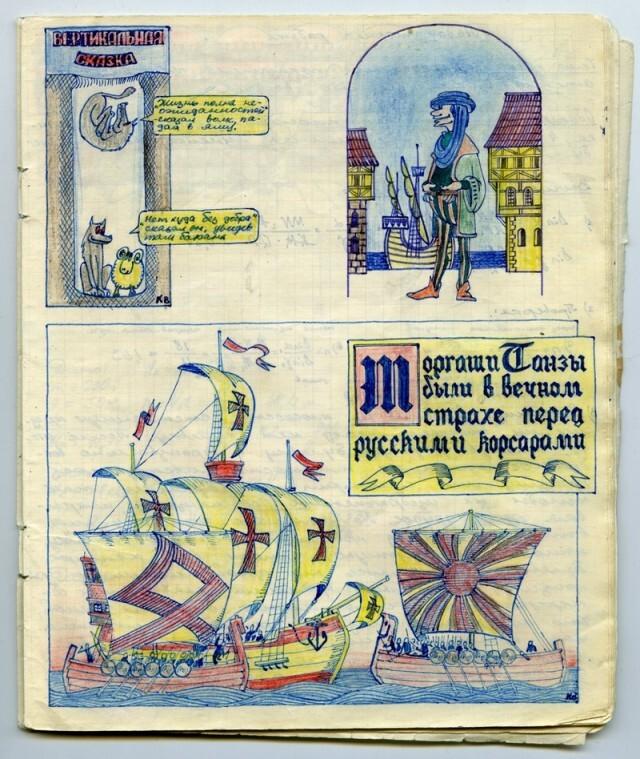 ВЕРТИКАЛЬНАЯ
СКАЗКА
"Жизнь полна не-
ожиданностей"
-сказал волк, па-
дая в яму.
"Нет худа без добра"
сказал он, увидев
там барана
КВ
Торгаши Ганзы
были в вечном
страхе перед
русскими корсарами
КВ